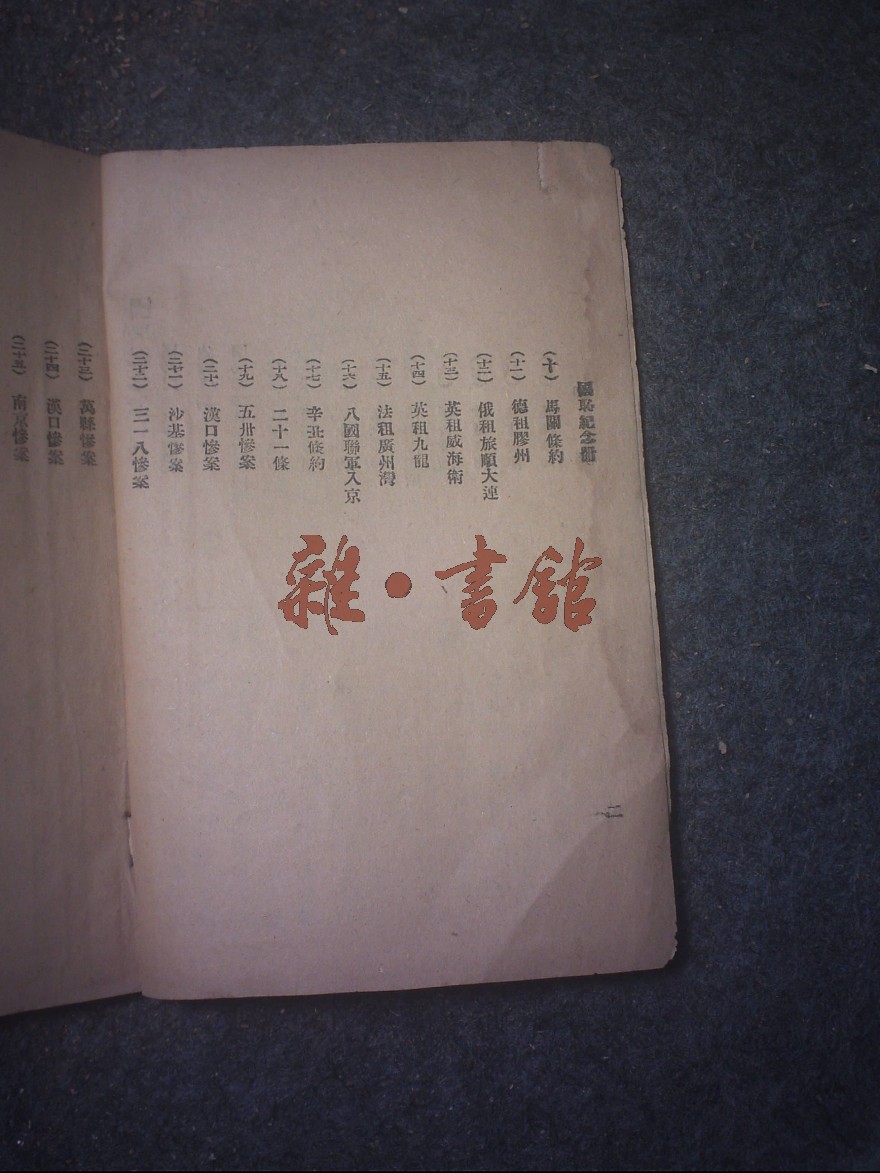 國恥紀念冊
（十）　馬關條約
（十一）　德租膠州
（十二）　俄租旅順大連
（十三）　英租威海衛
（十四）　英租九龍
（十五）　法租廣州灣
（十六）　八國聯軍入京
（十七）　辛丑條約
（十八）　二十一條
（十九）　五卅慘案
（二十）　漢口慘案
（二十一）　沙基慘案
（二十二）　三一八慘案
（二十三）　萬縣慘案
（二十四）　漢口慘案
（二十五）　南京慘案
二
雜·書館